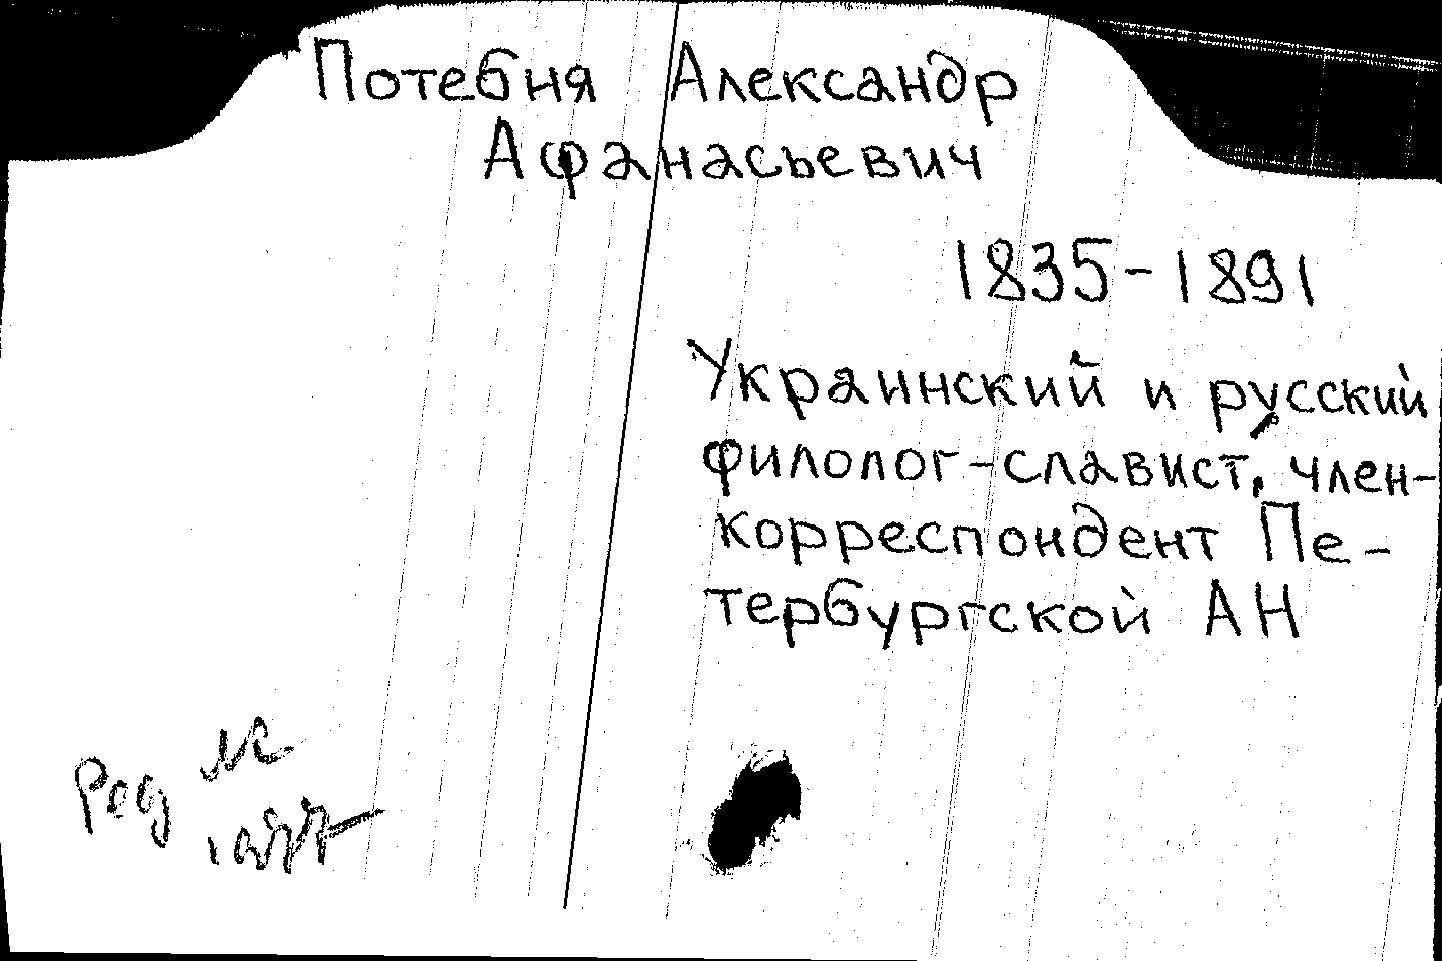 Потебня Александр
Афанасьевич
1835-1891
Украинский и русский
филолог-славист, член-
корреспондент Пе-
тербургской АН